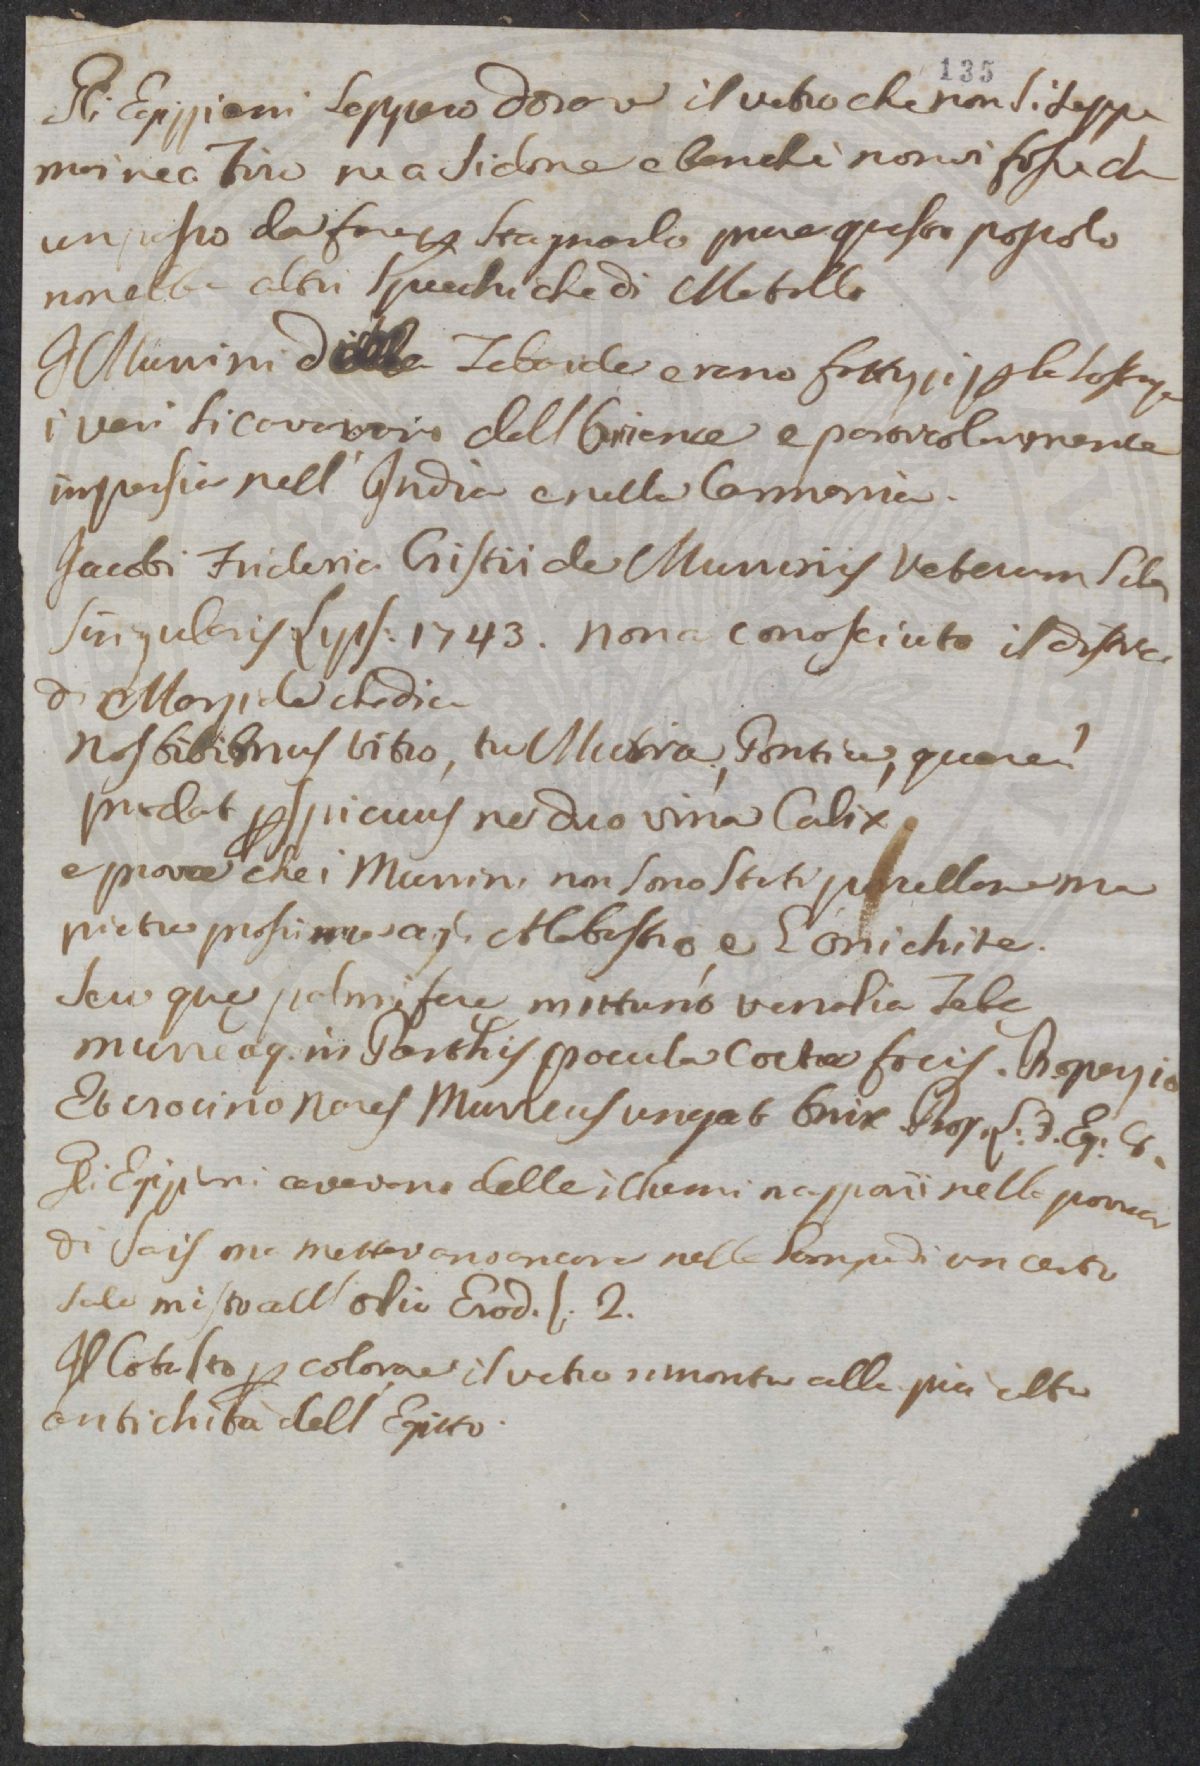 135
Gli Egizziani seppero dorare il vetro che non si seppe
mai ne a Tiro ne a Sidone e benchè non vi fosse che
un passo da fare p stagnarlo pure questo popolo
non ebbe altri specchi che di Metallo
I Murrini della Tebaide erano fattizzi p la
i veri si cavavano dall'Oriente e particolarmente
in persia nell' India e nella Carmania.
Jacobi Friderici Cristii de Murrinis Veterum Liber
Singularis Lyps: 1743. non a conosciuto il distico
di Marziale che dice
Nos bibimus vitro, tu Murra, Pontice, quare?
prodat pspicuus ne duo vina Calix
e prova che i Murrini non sono stati porcellane ma
pietre prossime agli Alabastro, e L'onichite.
Seu quę palmiferę mittunt venalia Tebę
murreaq. in Parthis pocula cocta focis. Properzio
Et crocino Nares Murreus ungat Onix Prop. L: 3. Eg: 8.
Gli Egizziani cavavano delle i lumi nappari nelle
di Sais ma mettevano ancora nelle lampadi un certo
sale misto all' olio Erod. l: 2.
Il Cobalto p colorare il vetro rimonta alla più alta
antichità dell' Egitto.